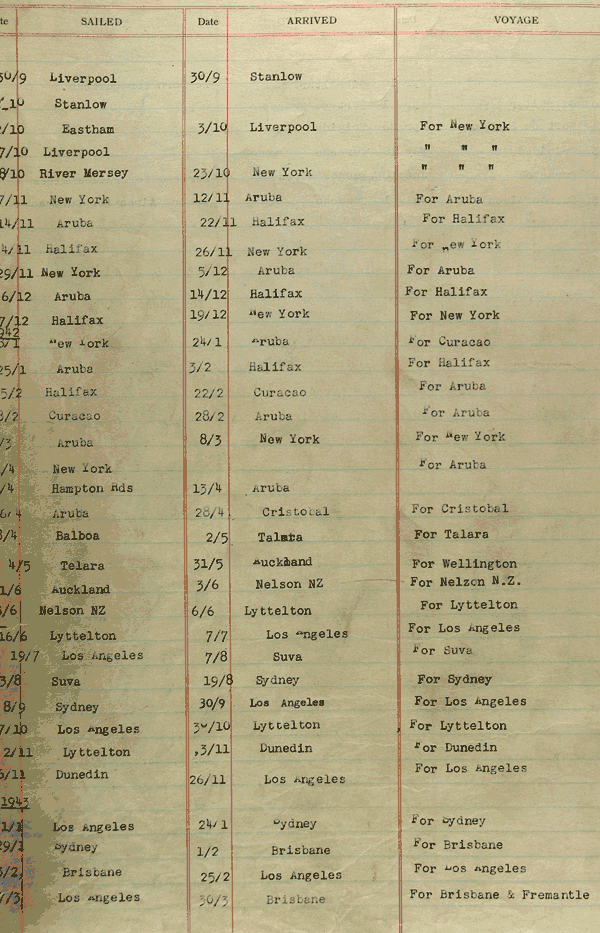 te SAILED Date ARRIVED VOYAGE
30/9 Liverpool 30/9 Stanlow
10 Stanlow
/10 Eastham 3/10 Liverpool For New York
7/10 Liverpool " " "
8/10 River Mersey 23/10 New York " " "
7/11 New York 12/11 Aruba For Aruba
14/11 Aruba 22/11 Halifax For Halifax
4/11 Halifax 26/11 New York For New York
29/11 New York 5/12 Aruba For Aruba
6/12 Aruba 14/12 Halifax For Halifax
7/12 Halifax 19/12 New York For New York
942
3/1 New York 24/1 Aruba For Curacao
25/1 Aruba 3/2 Halifax For Halifax
5/2 Halifax 22/2 Curacao For Aruba
/2 Curacao 28/2 Aruba For Aruba
/3 Aruba 8/3 New York For New York
/4 New York For Aruba
/4 Hampton Rds 13/4 Aruba
6/4 Aruba 28/4 Cristobal For Cristobal
/4 Balboa 2/5 Talara For Talara
4/5 Telara 31/5 Auckland For Wellington
1/6 Auckland 3/6 Nelson NZ For Nelzon N.Z.
/6 Nelson NZ 6/6 Lyttelton For Lyttelton
16/6 Lyttelton 7/7 Los Angeles For Los Angeles
19/7 Los Angeles 7/8 Suva For Suva
3/8 Suva 19/8 Sydney For Sydney
8/9 Sydney 30/9 Los Angeles For Los Angeles
7/10 Los Angeles 30/10 Lyttelton For Lyttelton
2/11 Lyttelton 3/11 Dunedin For Dunedin
/11 Dunedin 26/11 Los Angeles For Los Angeles
1943
1/1 Los Angeles 24/1 Sydney For Sydney
29/1 Sydney 1/2 Brisbane For Brisbane
3/2 Brisbane 25/2 Los Angeles For Los Angeles
/3 Los Angeles 30/3 Brisbane For Brisbane & Fremantle